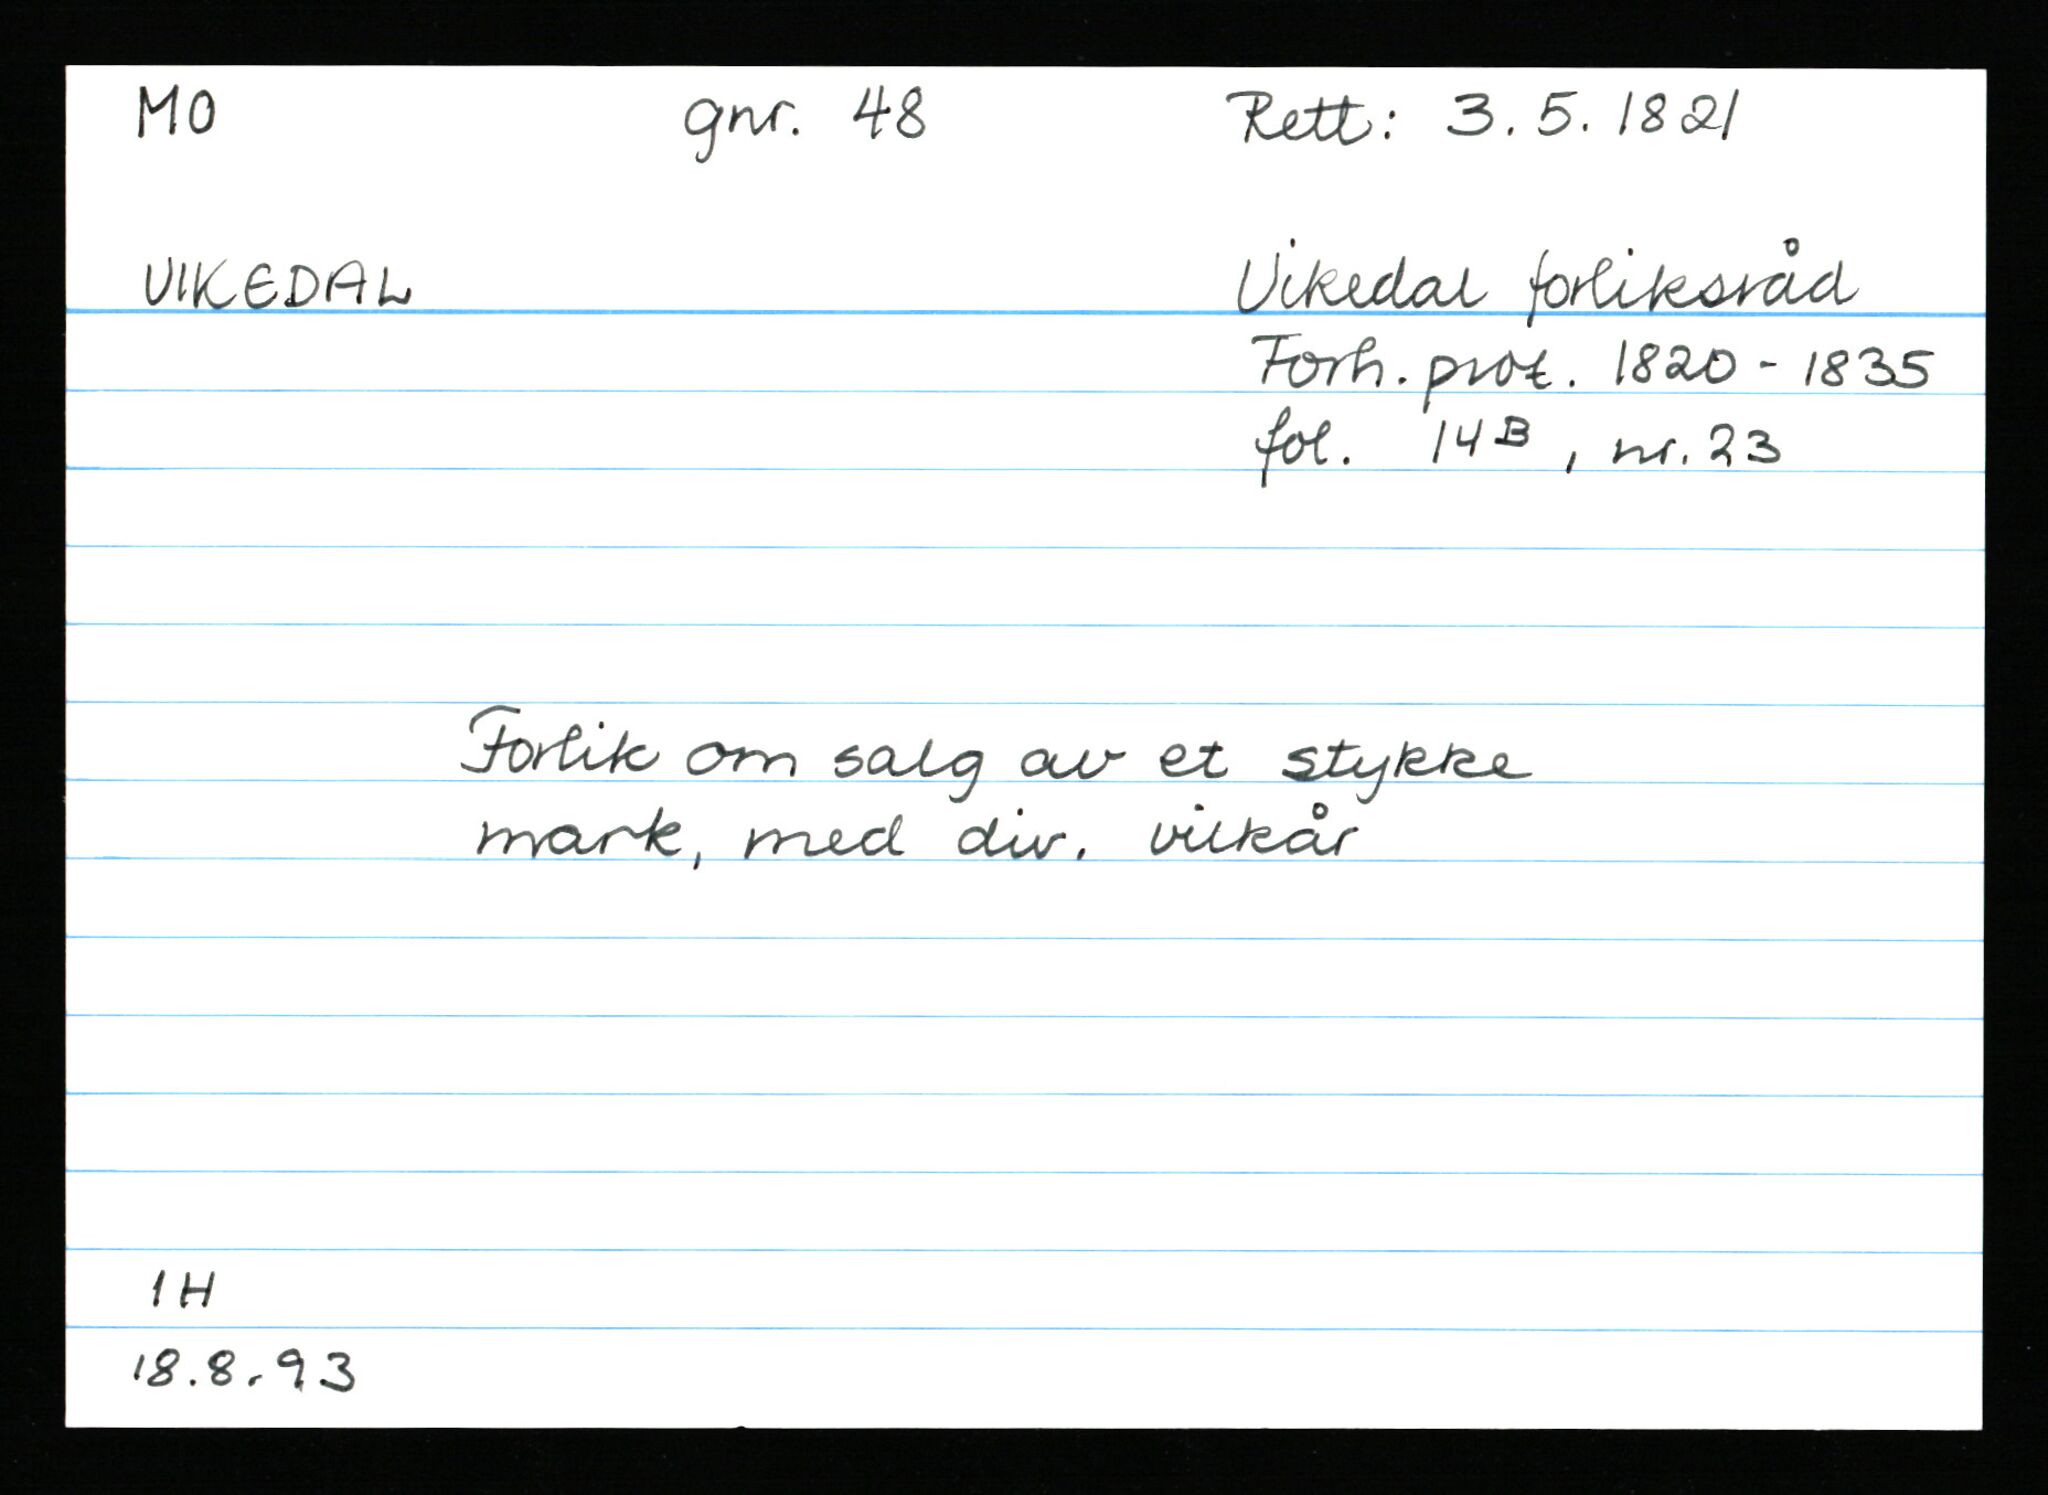 MO gnr. 48 Rett: 3.5.1821
VIKEDAL Vikedal forliksråd
Forh. prot. 1820 - 1835
fol. 14B, nr. 23
Forlik om salg av et stykke
mark, med div. vilkår
IH
18.8.93